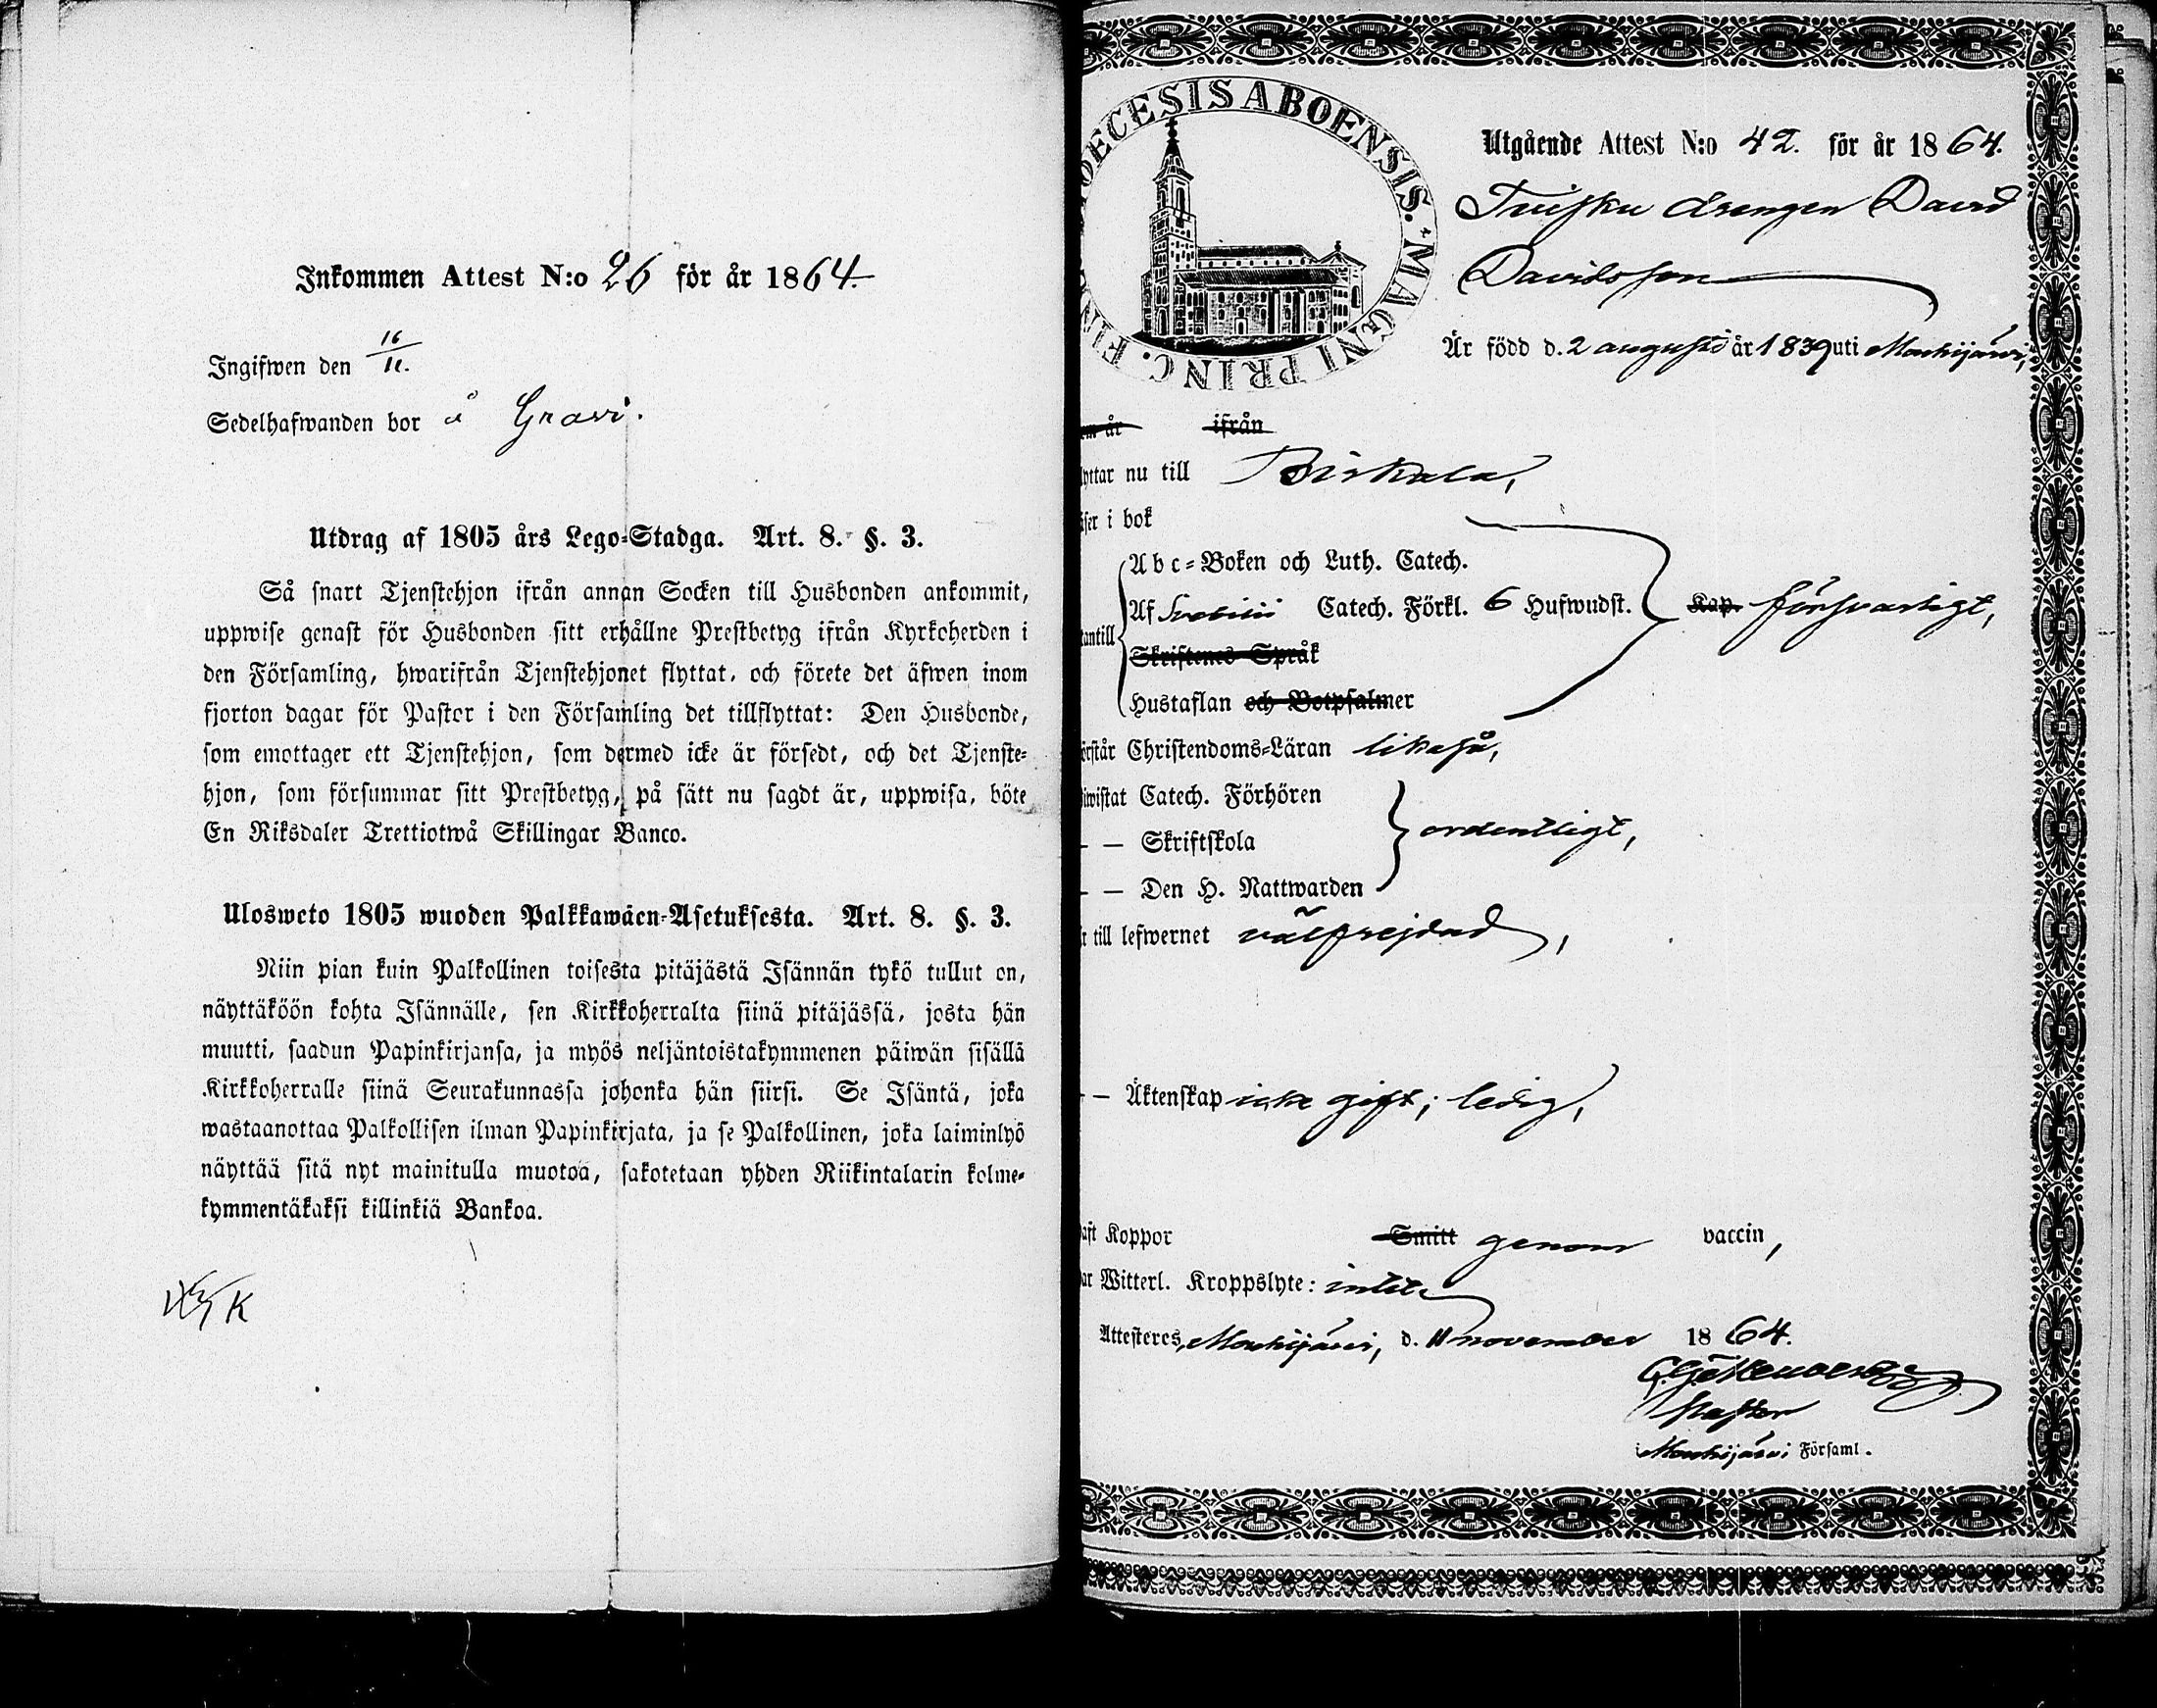 Inkommen Attest N:o 26 för år 1864.
Ingifwen den 16/11.
Sedelhafwanden bor å Grawi.
Utdrag af 1805 års Lego-Stadga. Art. 8. §. 3.
Så snart Tjenstehjon ifrån annan Socken till Husbonden ankommit,
uppwise genast för Husbonden sitt erhållne Prestbetyg ifrån Kyrkoherden i
den Församling, hwarifrån Tjenstehjonet flyttat, och förete det äfwen inom
fjorton dagar för Pastor i den Församling det tillflyttat: Den Husbonde,
som emottager ett Tjenstehjon, som dermed icke är försedt, och det Tjenste-
hjon, som försummar sitt Prestbetyg, på sätt nu sagdt är, uppwisa, böte
En Riksdaler Trettiotwå Skillingar Banco.
Ulosweto 1805 wuoden Palkkawäen-Asetuksesta. Art. 8. §. 3.
Niin pian kuin Palkollinen toisesta pitäjästä Isännän tykö tullut on,
näyttäköön kohta Isännälle, sen Kirkkoherralta siinä pitäjässä, josta hän
muutti, saadun Papinkirjansa, ja myös neljäntoistakymmenen päiwän sisällä
Kirkkoherralle siinä Seurakunnassa johonka hän siirsi. Se Isäntä, joka
wastaanottaa Palkollisen ilman Papinkirjata, ja se Palkollinen, joka laiminlyö
näyttää sitä nyt mainitulla muotoa, sakotetaan yhden Riikintalarin kolme-
kymmentäkaksi killinkiä Bankoa.
OECESIS ABOENSIS. * MAGNI PRINC. FIN
Utgående Attest N:o 42. för år 1864.
drengen David
Davidsson
Är född d. 2 augusti år 1839 uti Mouhijärvi,
år ifrån
yttar nu till Birkala,
ser i bok
Abc-Boken och Luth. Catech.
Af Svebilii Catech. Förkl. 6 Hufwudst. Kap. försvarligt,
antill
Skriftenes Språk
Hustaflan och Botpsalmer
rstår Christendoms-Läran likaså,
iwistat Catech. Förhören
— — Skriftskola ordentligt,
— — Den H. Nattwarden
till lefwernet välfrejdad,
— — Äktenskap icke gift; ledig,
aft Koppor Smitt genom vaccin,
ar Witterl. Kroppslyte: intet
Attesteres, Mouhijärvi, d. 11 november 1864.
Pastor
i Mouhijärvi Församl.